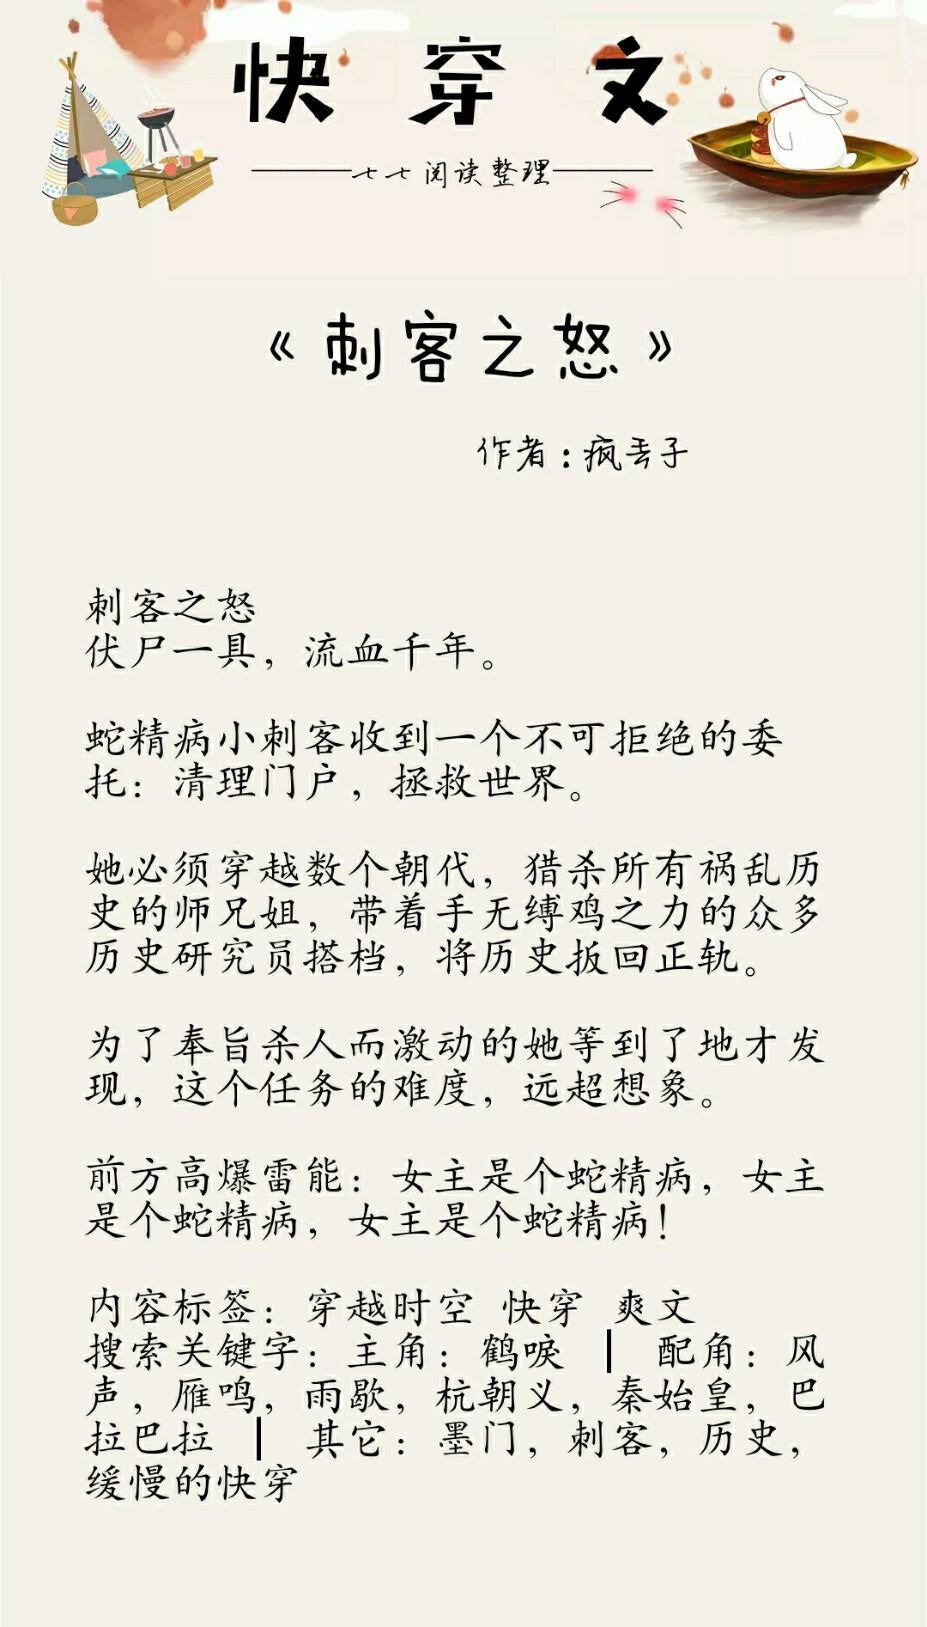 快穿文
七七阅读整理
《刺客之怒》
作者：疯丢子
刺客之怒
伏尸一具，流血千年。
蛇精病小刺客收到一个不可拒绝的委
托：清理门户，拯救世界。
她必须穿越数个朝代，猎杀所有祸乱历
史的师兄姐，带着手无缚鸡之力的众多
历史研究员搭档，将历史扳回正轨。
为了奉旨杀人而激动的她等到了地才发
现，这个任务的难度，远超想象。
前方高爆雷能：女主是个蛇精病，女主
是个蛇精病，女主是个蛇精病！
内容标签：穿越时空 快穿 爽文
搜索关键字：主角：鹤唳 ┃ 配角：风
声，雁鸣，雨歇，杭朝义，秦始皇，巴
拉巴拉 ┃ 其它：墨门，刺客，历史，
缓慢的快穿